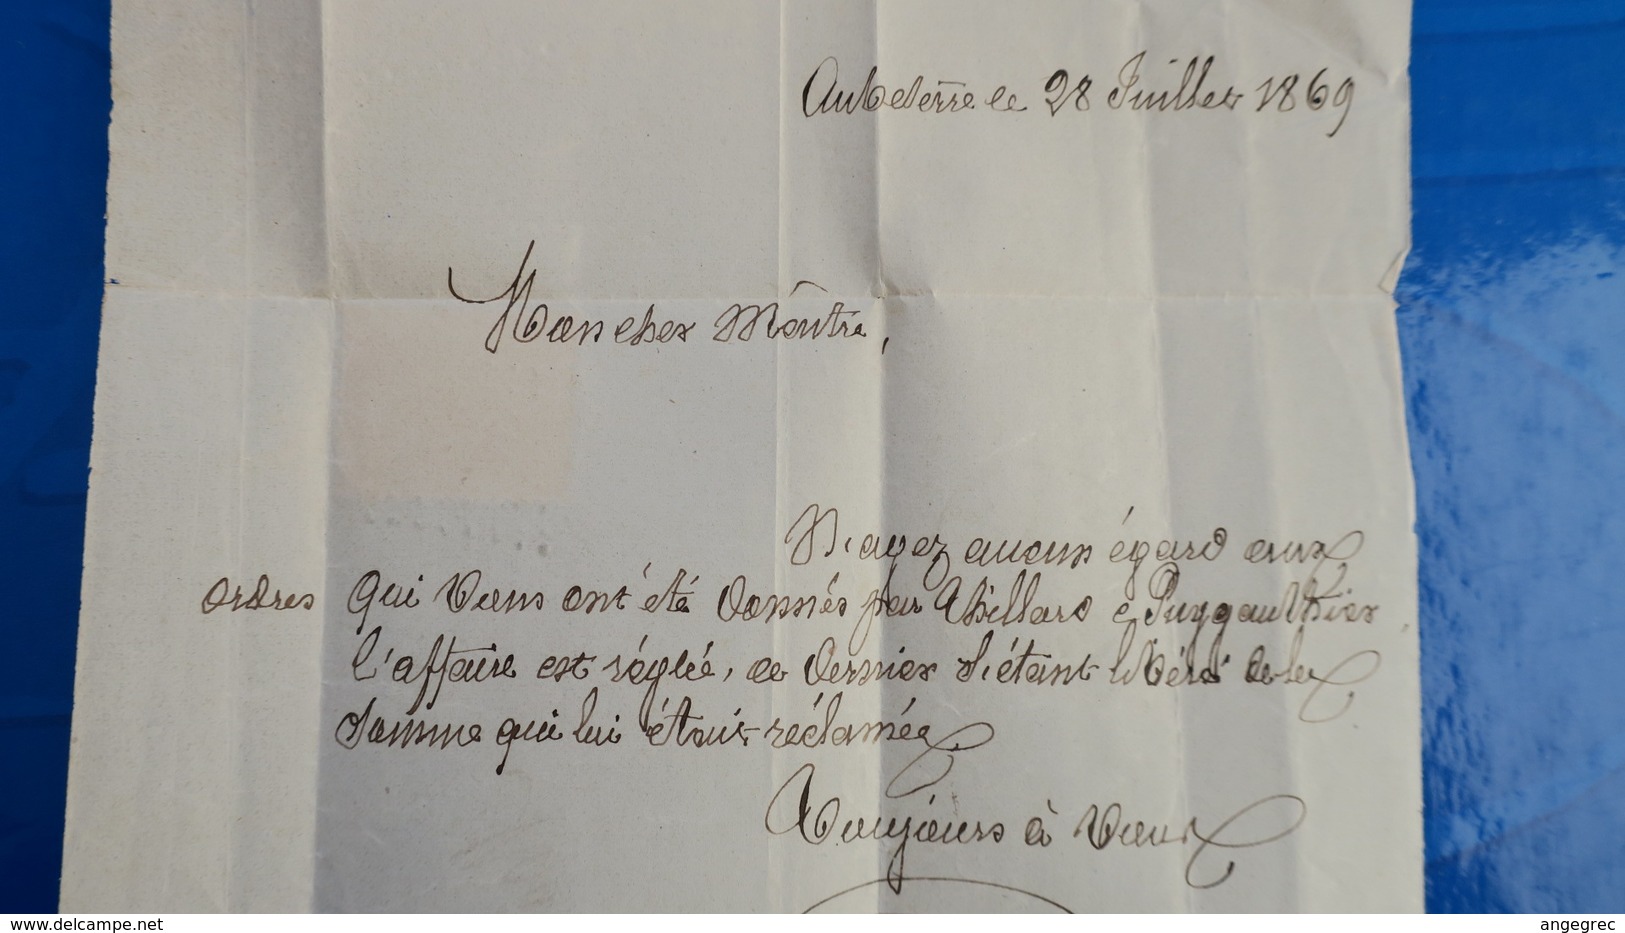 Aubeterre le 28 Juillet 1869
Mon cher Maître,
N'ayez aucun égard aux
ordres qui vous ont été donnés par Thillard c Puygauthier
l'affaire est réglée, ce dernier s'étant libéré de la
somme qui lui était réclamée
Toujours à vous
www.delcampe.net
angegrec